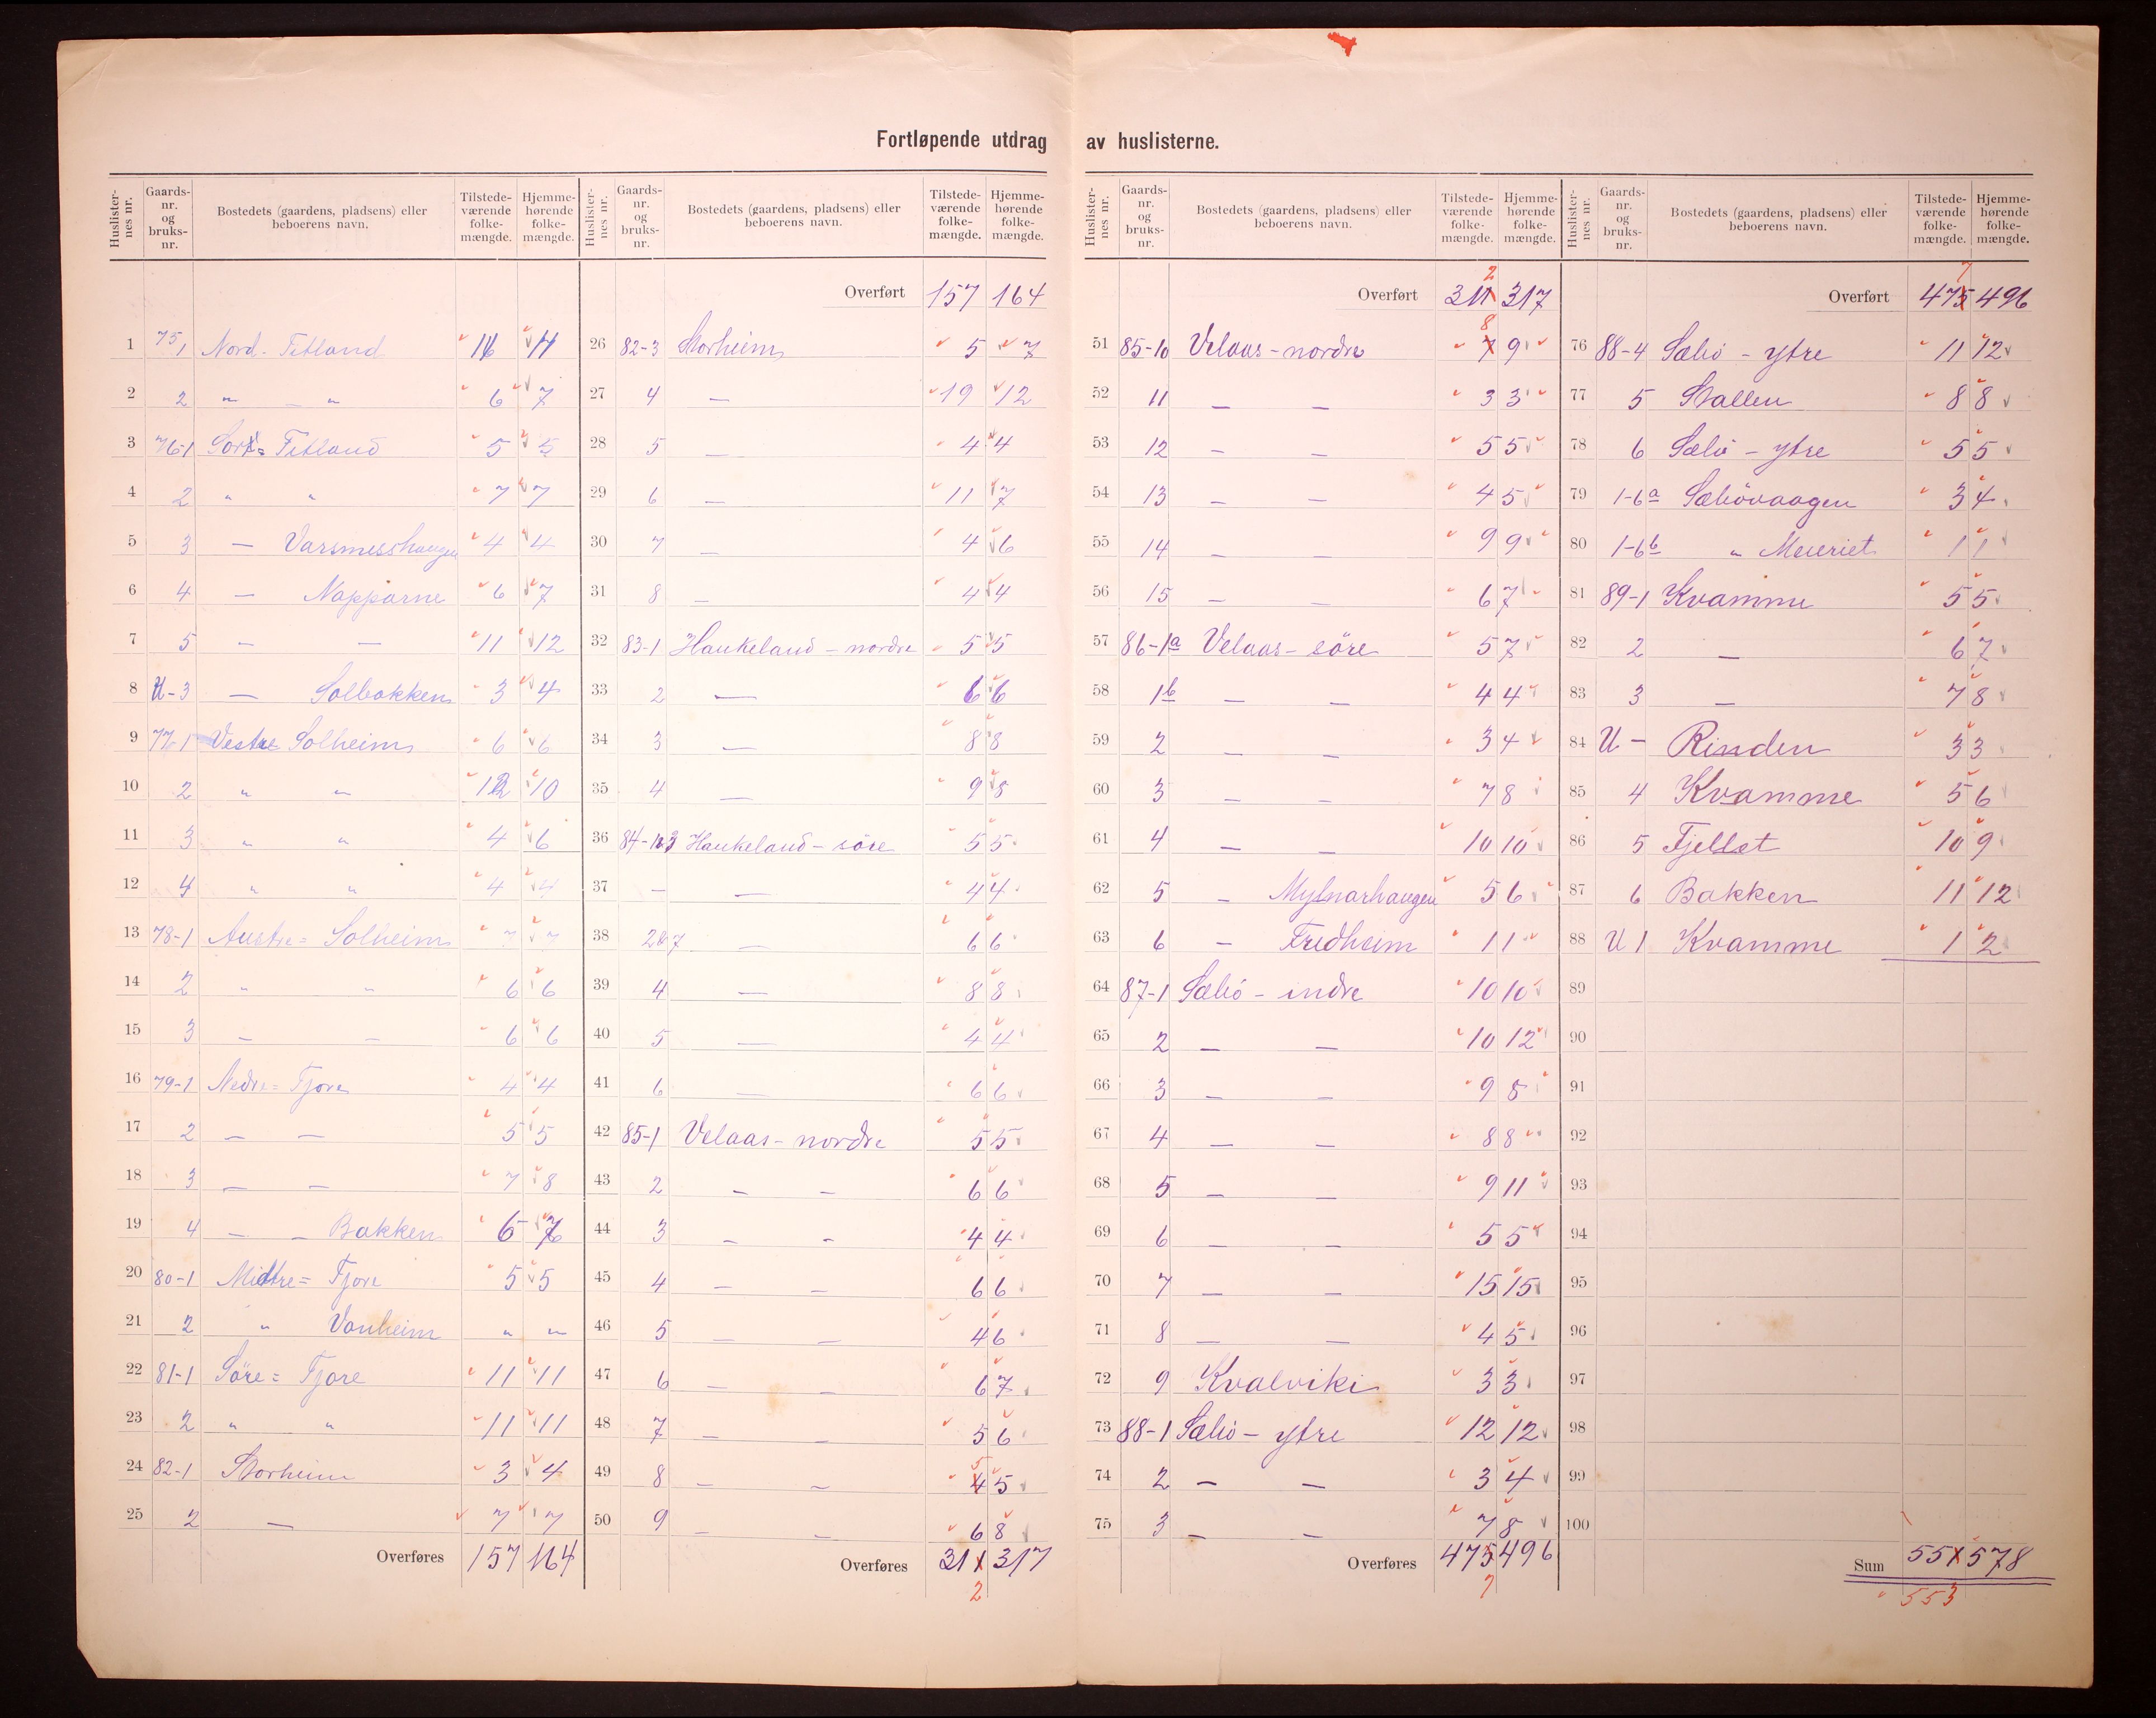 Fortløpende utdrag av huslisterne.
Huslisternes nr. Gaards-nr. og bruks-nr. Bostedets (gaardens, pladsens) eller beboerens navn. Tilstedeværende folkemængde. Hjemmehørende folkemængde.
1 75,1 Nord- Fitland
2 2 " — " 6 7
3 76-1 Sør= Fitland 5 5
4 2 " " 7 7
5 3 — Varsmesshaugen 4 4
6 4 — Napparne 6 7
7 5 — — 11 12
8 U-3 — Solbakken 3 4
9 77-1 Vestre Solheim 6 6
10 2 " " 12 10
11 3 " " 4 6
12 4 " " 4 4
13 78-1 Austre= Solheim 7 7
14 2 " " 6 6
15 3 — — 6 6
16 79-1 Nedre= Fjore 4 4
17 2 — — 5 5
18 3 — — 7 8
19 4 — — Bakken 6 7
20 80-1 Midtre= Fjore 5 5
21 2 " Vonheim " "
22 81-1 Søre= Fjore 11 11
23 2 " " 11 11
24 82-1 Storheim 3 4
25 2 — 7 7
Overføres 157 164
Huslisternes nr. Gaards-nr. og bruks-nr. Bostedets (gaardens, pladsens) eller beboerens navn. Tilstedeværende folkemængde. Hjemmehørende folkemængde.
Overført 157 164
26 82-3 Storheim 5 7
27 4 — 19 12
28 5 — 4 4
29 6 — 11 7
30 7 — 4 6
31 8 — 4 4
32 83-1 Haukeland - nordre 5 5
33 2 — 6 6
34 3 — 8 8
35 4 — 9 8
36 84-1&3 Haukeland - söre 5 5
37 — — 4 4
38 2&7 — 6 6
39 4 — 8 8
40 5 — 4 4
41 6 — 6 6
42 85-1 Velaas - nordre 5 5
43 2 — — 6 6
44 3 — — 4 4
45 4 — — 6 6
46 5 — — 4 6
47 6 — — 6 7
48 7 — — 5 6
49 8 — — 4 5 5
50 9 — — 6 8
Overføres 311 317
2
Huslisternes nr. Gaards-nr. og bruks-nr. Bostedets (gaardens, pladsens) eller beboerens navn. Tilstedeværende folkemængde. Hjemmehørende folkemængde.
2
Overført 311 317
51 85-10 Velaas - nordre 7 8 9
52 11 — — 3 3
53 12 — — 5 5
54 13 — — 4 5
55 14 — — 9 9
56 15 — — 6 7
57 86-1a Velaas - söre 5 7
58 1b — — 4 4
59 2 — — 3 4
60 3 — — 7 8
61 4 — — 10 10
62 5 — Mylnarhaugen 5 6
63 6 — Fredheim 1 1
64 87-1 Sæbö - indre 10 10
65 2 — — 10 12
66 3 — — 9 8
67 4 — — 8 8
68 5 — — 9 11
69 6 — — 5 5
70 7 — — 15 15
71 8 — — 4 5
72 9 Kvalviki 3 3
73 88-1 Sæbö - ytre 12 12
74 2 — — 3 4
75 3 — — 7 8
Overføres 475 496
7
Huslisternes nr. Gaards-nr. og bruks-nr. Bostedets (gaardens, pladsens) eller beboerens navn. Tilstedeværende folkemængde. Hjemmehørende folkemængde.
7
Overført 475 496
76 88-4 Sæbö - ytre 11 12
77 5 Stallen 8 8
78 6 Sæbö - ytre 5 5
79 1-6a Sæbövaagen 3 4
80 1-6b " Meieriet 1 1
81 89-1 Kvamme 5 5
82 2 — 6 7
83 3 — 7 8
84 U — Rinden 3 3
85 4 Kvamme 5 6
86 5 Fjellet 10 9
87 6 Bakken 11 12
88 U 1 Kvamme 1 2
89
90
91
92
93
94
95
96
97
98
99
100
Sum 551 578
553